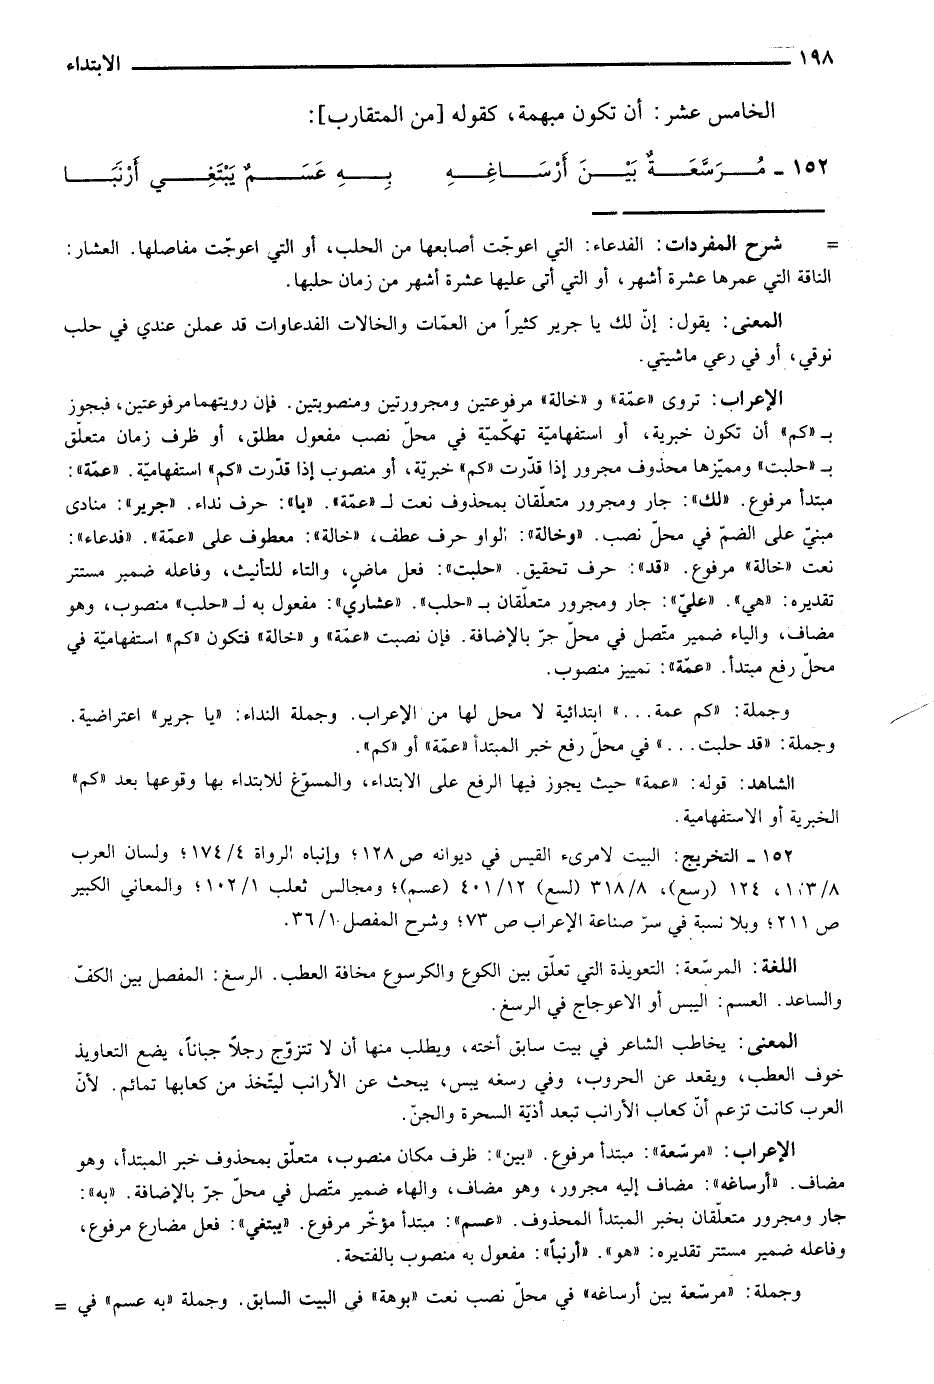 ١٩٨ الابتداء
الخامس عشر: أن تكون مبهمة، كقوله [من المتقارب]:
١٥٢ ـ مُـرَسَّعَـةٌ بَيْـنَ أَرْسَـاغِـهِ بِـهِ عَسَـمٌ يَبْتَغِـي أَرْنَبَـا
= شرح المفردات: الفدعاء: التي اعوجّت أصابعها من الحلب، أو التي اعوجّت مفاصلها. العشار:
الناقة التي عمرها عشرة أشهر، أو التي أتى عليها عشرة أشهر من زمان حلبها.
المعنى: يقول: إنّ لك يا جرير كثيراً من العمّات والخالات الفدعاوات قد عملن عندي في حلب
نوقي، أو في رعي ماشيتي.
الإعراب: تروى «عمّة» و «خالة» مرفوعتين ومجرورتين ومنصوبتين. فإن رويتهما مرفوعتين، فيجوز
بـ «كم» أن تكون خبرية، أو استفهاميّة تهكّميّة في محلّ نصب مفعول مطلق، أو ظرف زمان متعلّق
بـ «حلبت» ومميّزها محذوف مجرور إذا قدّرت «كم» خبريّة، أو منصوب إذا قدّرت «كم» استفهاميّة. «عمّة»:
مبتدأ مرفوع. «لك»: جار ومجرور متعلّقان بمحذوف نعت لـ «عمّة». «يا»: حرف نداء. «جرير»: منادى
مبنيّ على الضمّ في محلّ نصب. «وخالة»: الواو حرف عطف، «خالة»: معطوف على «عمّة». «فدعاء»:
نعت «خالة» مرفوع. «قد»: حرف تحقيق. «حلبت»: فعل ماضٍ، والتاء للتأنيث، وفاعله ضمير مستتر
تقديره: «هي». «عليّ»: جار ومجرور متعلّقان بـ «حلب». «عشاري»: مفعول به لـ «حلب» منصوب، وهو
مضاف، والياء ضمير متّصل في محلّ جرّ بالإضافة. فإن نصبت «عمّة» و «خالة» فتكون «كم» استفهاميّة في
محلّ رفع مبتدأ. «عمّة»: تمييز منصوب.
وجملة: «كم عمة...» ابتدائية لا محل لها من الإعراب. وجملة النداء: «يا جرير» اعتراضية.
وجملة: «قد حلبت...» في محلّ رفع خبر المبتدأ «عمّة» أو «كم».
الشاهد: قوله: «عمة» حيث يجوز فيها الرفع على الابتداء، والمسوّغ للابتداء بها وقوعها بعد «كم»
الخبرية أو الاستفهامية.
١٥٢ ـ التخريج: البيت لامرىء القيس في ديوانه ص ١٢٨؛ وإنباه الرواة ١٧٤/٤؛ ولسان العرب
١٠٣/٨، ١٢٤ (رسع)، ٣١٨/٨ (لسع) ٤٠١/١٢ (عسم)؛ ومجالس ثعلب ١٠٢/١؛ والمعاني الكبير
ص ٢١١؛ وبلا نسبة في سرّ صناعة الإعراب ص ٧٣؛ وشرح المفصل ٣٦/١.
اللغة: المرسّعة: التعويذة التي تعلّق بين الكوع والكرسوع مخافة العطب. الرسغ: المفصل بين الكفّ
والساعد. العسم: اليبس أو الاعوجاج في الرسغ.
المعنى: يخاطب الشاعر في بيت سابق أخته، ويطلب منها أن لا تتزوّج رجلاً جباناً، يضع التعاويذ
خوف العطب، ويقعد عن الحروب، وفي رسغه يبس، يبحث عن الأرانب ليتّخذ من كعابها تمائم. لأنّ
العرب كانت تزعم أنّ كعاب الأرانب تبعد أذيّة السحرة والجنّ.
الإعراب: «مرسّعة»: مبتدأ مرفوع. «بين»: ظرف مكان منصوب، متعلّق بمحذوف خبر المبتدأ، وهو
مضاف. «أرساغه»: مضاف إليه مجرور، وهو مضاف، والهاء ضمير متّصل في محلّ جرّ بالإضافة. «به»:
جار ومجرور متعلّقان بخبر المبتدأ المحذوف. «عسم»: مبتدأ مؤخّر مرفوع. «يبتغي»: فعل مضارع مرفوع،
وفاعله ضمير مستتر تقديره: «هو». «أرنباً»: مفعول به منصوب بالفتحة.
وجملة: «مرسّعة بين أرساغه» في محلّ نصب نعت «بوهة» في البيت السابق. وجملة «به عسم» في =